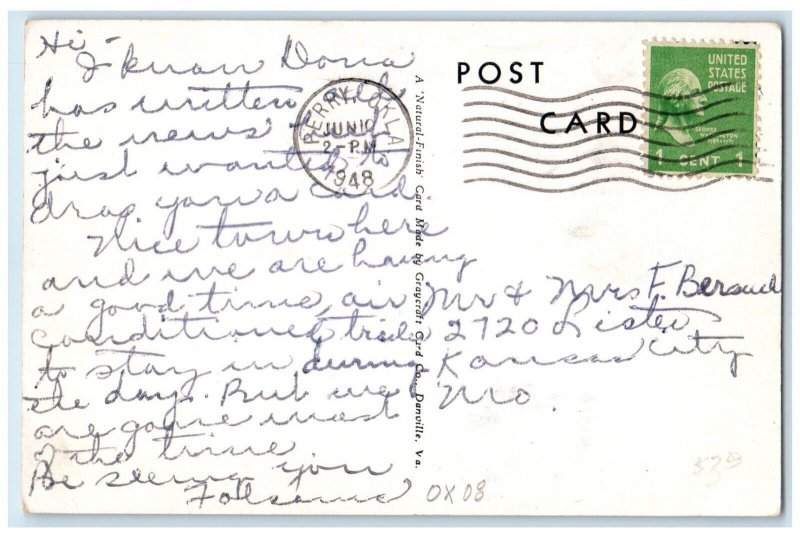 Hi -
I know Dona
has written all
the news I
just wanted to
drop you a card.
Nice town here
and we are having
a good time, air
conditioned
to stay in during
the day. But we
are gone most
of the time
Be seeing you
Folsoms
A 'Natural-Finish' Card Made by Graycraft Card Co., Danville, Va.
POST
CARD
PERRY, OKLA
JUN 10
2-PM
1948
UNITED
STATES
POSTAGE
GEORGE
WASHINGTON
1 CENT 1
Mr & Mrs F.
2720 Lister
Kansas City
Mo.
OX08